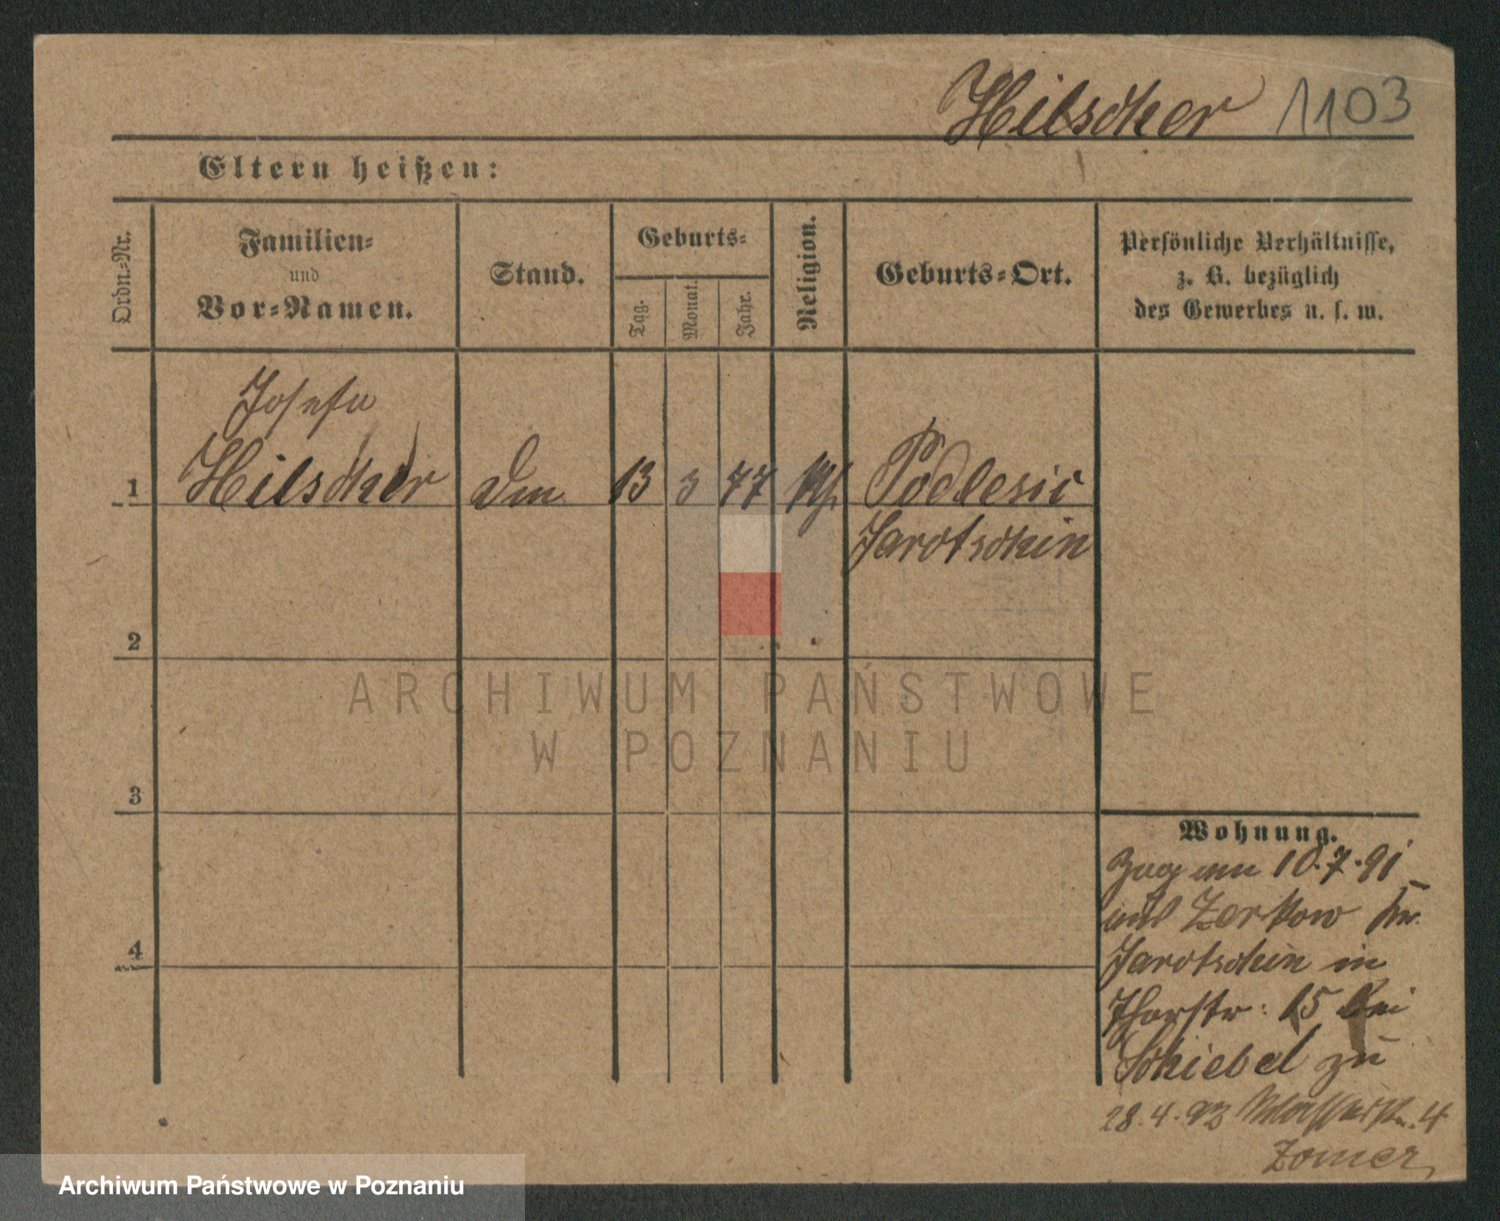 Hilscher 1103
Eltern heißen:
Ordn.-Nr.
Familien-
und
Vor-Namen.
Stand.
Geburts-
Tag.
Monat.
Jahr.
Religion.
Geburts-Ort.
Persönliche Verhältnisse,
z. B. bezüglich
des Gewerbes u. s. w.
Josefa
1 Hilscher 13 3 77 Podlesie
Jarotschin
2
ARCHIWUM PAŃSTWOWE
W POZNANIU
3
Wohnung.
Zog am 10.7.91
aus Zerkow Kr.
Jarotschin in
15 bei
Schiebel zu
4
28.4.93 Wasserstr. 4
Zomer
Archiwum Państwowe w Poznaniu